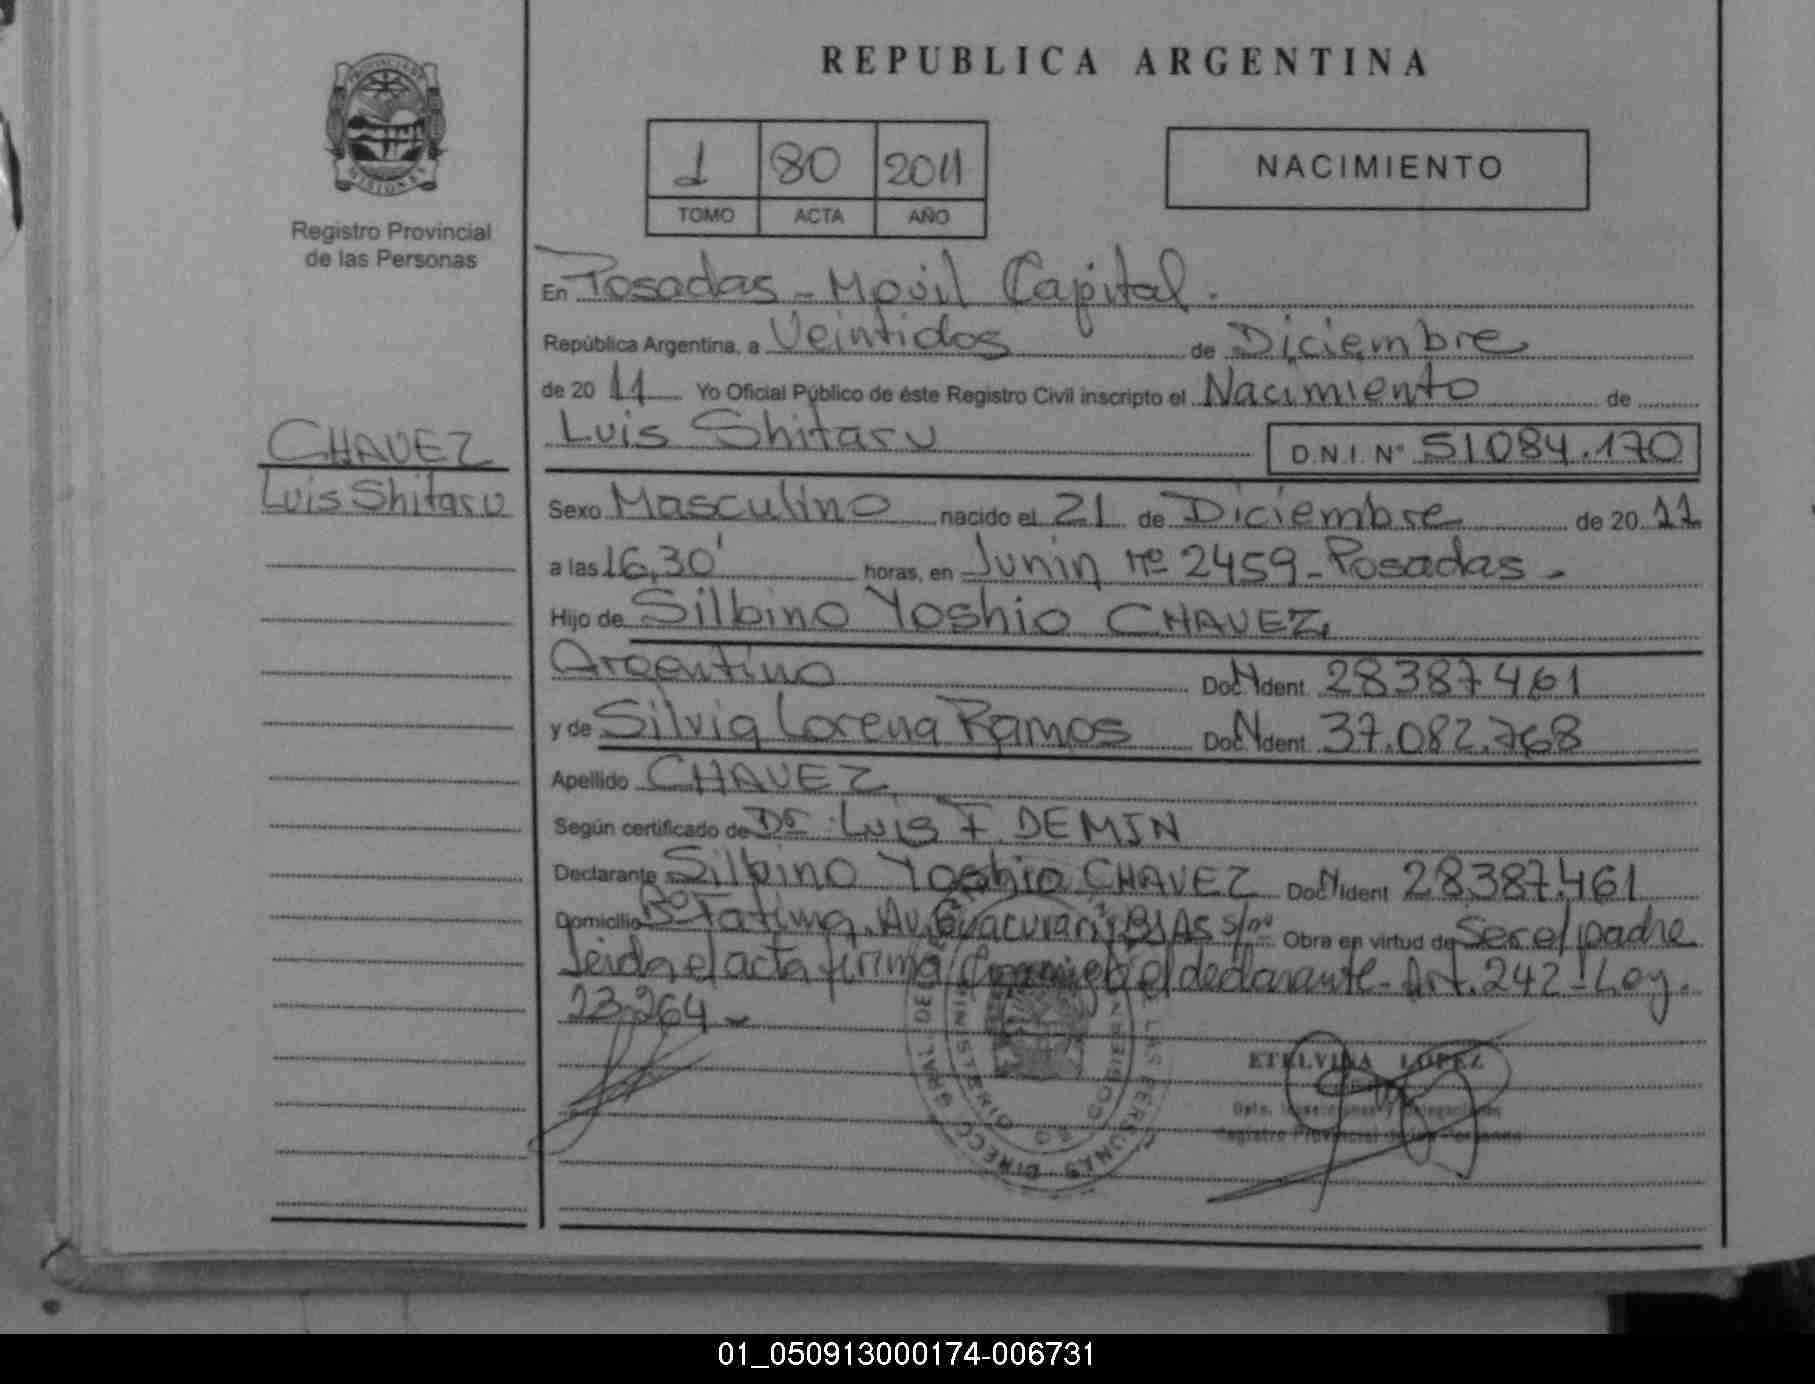 REPUBLICA ARGENTINA
PROVINCIA DE
MISIONES
Registro Provincial
de las Personas
1 80 2011
TOMO ACTA AÑO
NACIMIENTO
En Posadas - Movil Capital.
República Argentina, a Veintidos de Diciembre
de 20 11 Yo Oficial Público de éste Registro Civil inscripto el Nacimiento de
Luis Shitaru D.N.I. Nº 51084.170
CHAVEZ
Luis Shitaru
Sexo Masculino nacido el 21 de Diciembre de 20 11
a las 16,30' horas, en Junin nº 2459 - Posadas -
Hijo de Silbino Yoshio CHAVEZ,
Argentino Doc. N Ident. 28387461
y de Silvia Lorena Ramos Doc. N Ident. 37.082.768
Apellido CHAVEZ
Según certificado de Dr. Luis F. DEMIN
Declarante Silbino Yoshio CHAVEZ Doc. N Ident 28387.461
Domicilio Bº Fatima, Av. y BsAs s/nº Obra en virtud de Ser el padre
leida el acta firma el declarante - Art. 242 - Ley.
23.264 -
ETELVINA LOPEZ
Registro Provincial de las Personas
DIRECC. GRAL.
LAS PERSONAS
MINISTERIO DE GOBIERNO
01_050913000174-006731